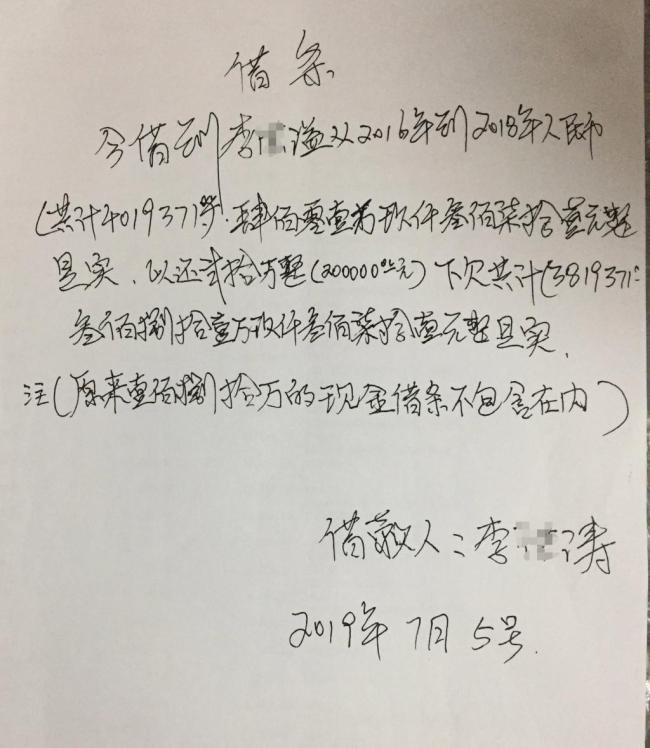 借条
今借到李 溢从2016年到2018年人民币
(共计4019371元.肆佰零壹万玖仟叁佰柒拾壹元整
是实、以还贰拾万整(200000元)下欠共计(3819371元
叁佰捌拾壹万玖仟叁佰柒拾壹元整是实.
注(原来壹佰捌拾万的现金借条不包含在内)
借款人:李 涛
2019年7月5号.